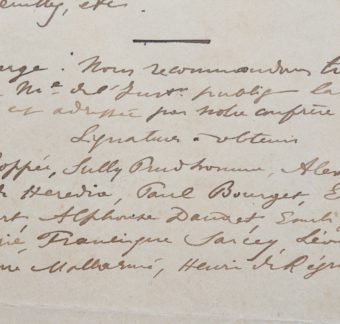 etc.
: Nous recommandons
Mre de l'Instr. publiq. la
et adressée par notre confrère
Signatures à obtenir
oppée, Sully Prudhomme, Alex
de Heredia, Paul Bourget, E
Alphonse Daudet, Emile
Francisque Sarcey, Léo
Mallarmé, Henri de Régn